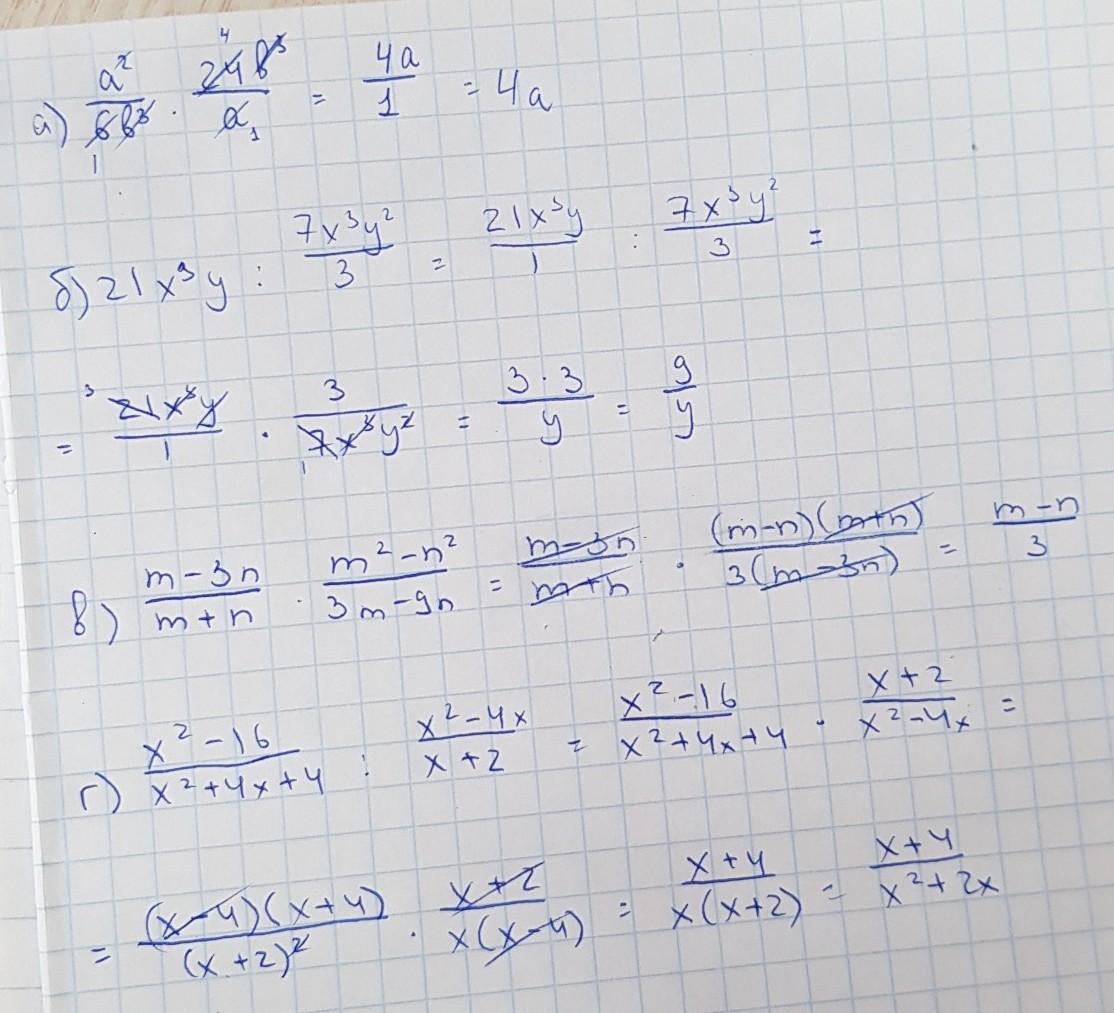 а) a²/6b³ · 24b³/a = 4a/1 = 4a
б) 21x³y : 7x³y²/3 = 21x³y/1 : 7x³y²/3 =
= 21x³y/1 · 3/7x³y² = 3·3/y = 9/y
в) m-3n/m+n · m²-n²/3m-9n = m-3n/m+n · (m-n)(m+n)/3(m-3n) = m-n/3
г) x²-16/x²+4x+4 : x²-4x/x+2 = x²-16/x²+4x+4 · x+2/x²-4x =
= (x-4)(x+4)/(x+2)² · x+2/x(x-4) = x+4/x(x+2) = x+4/x²+2x